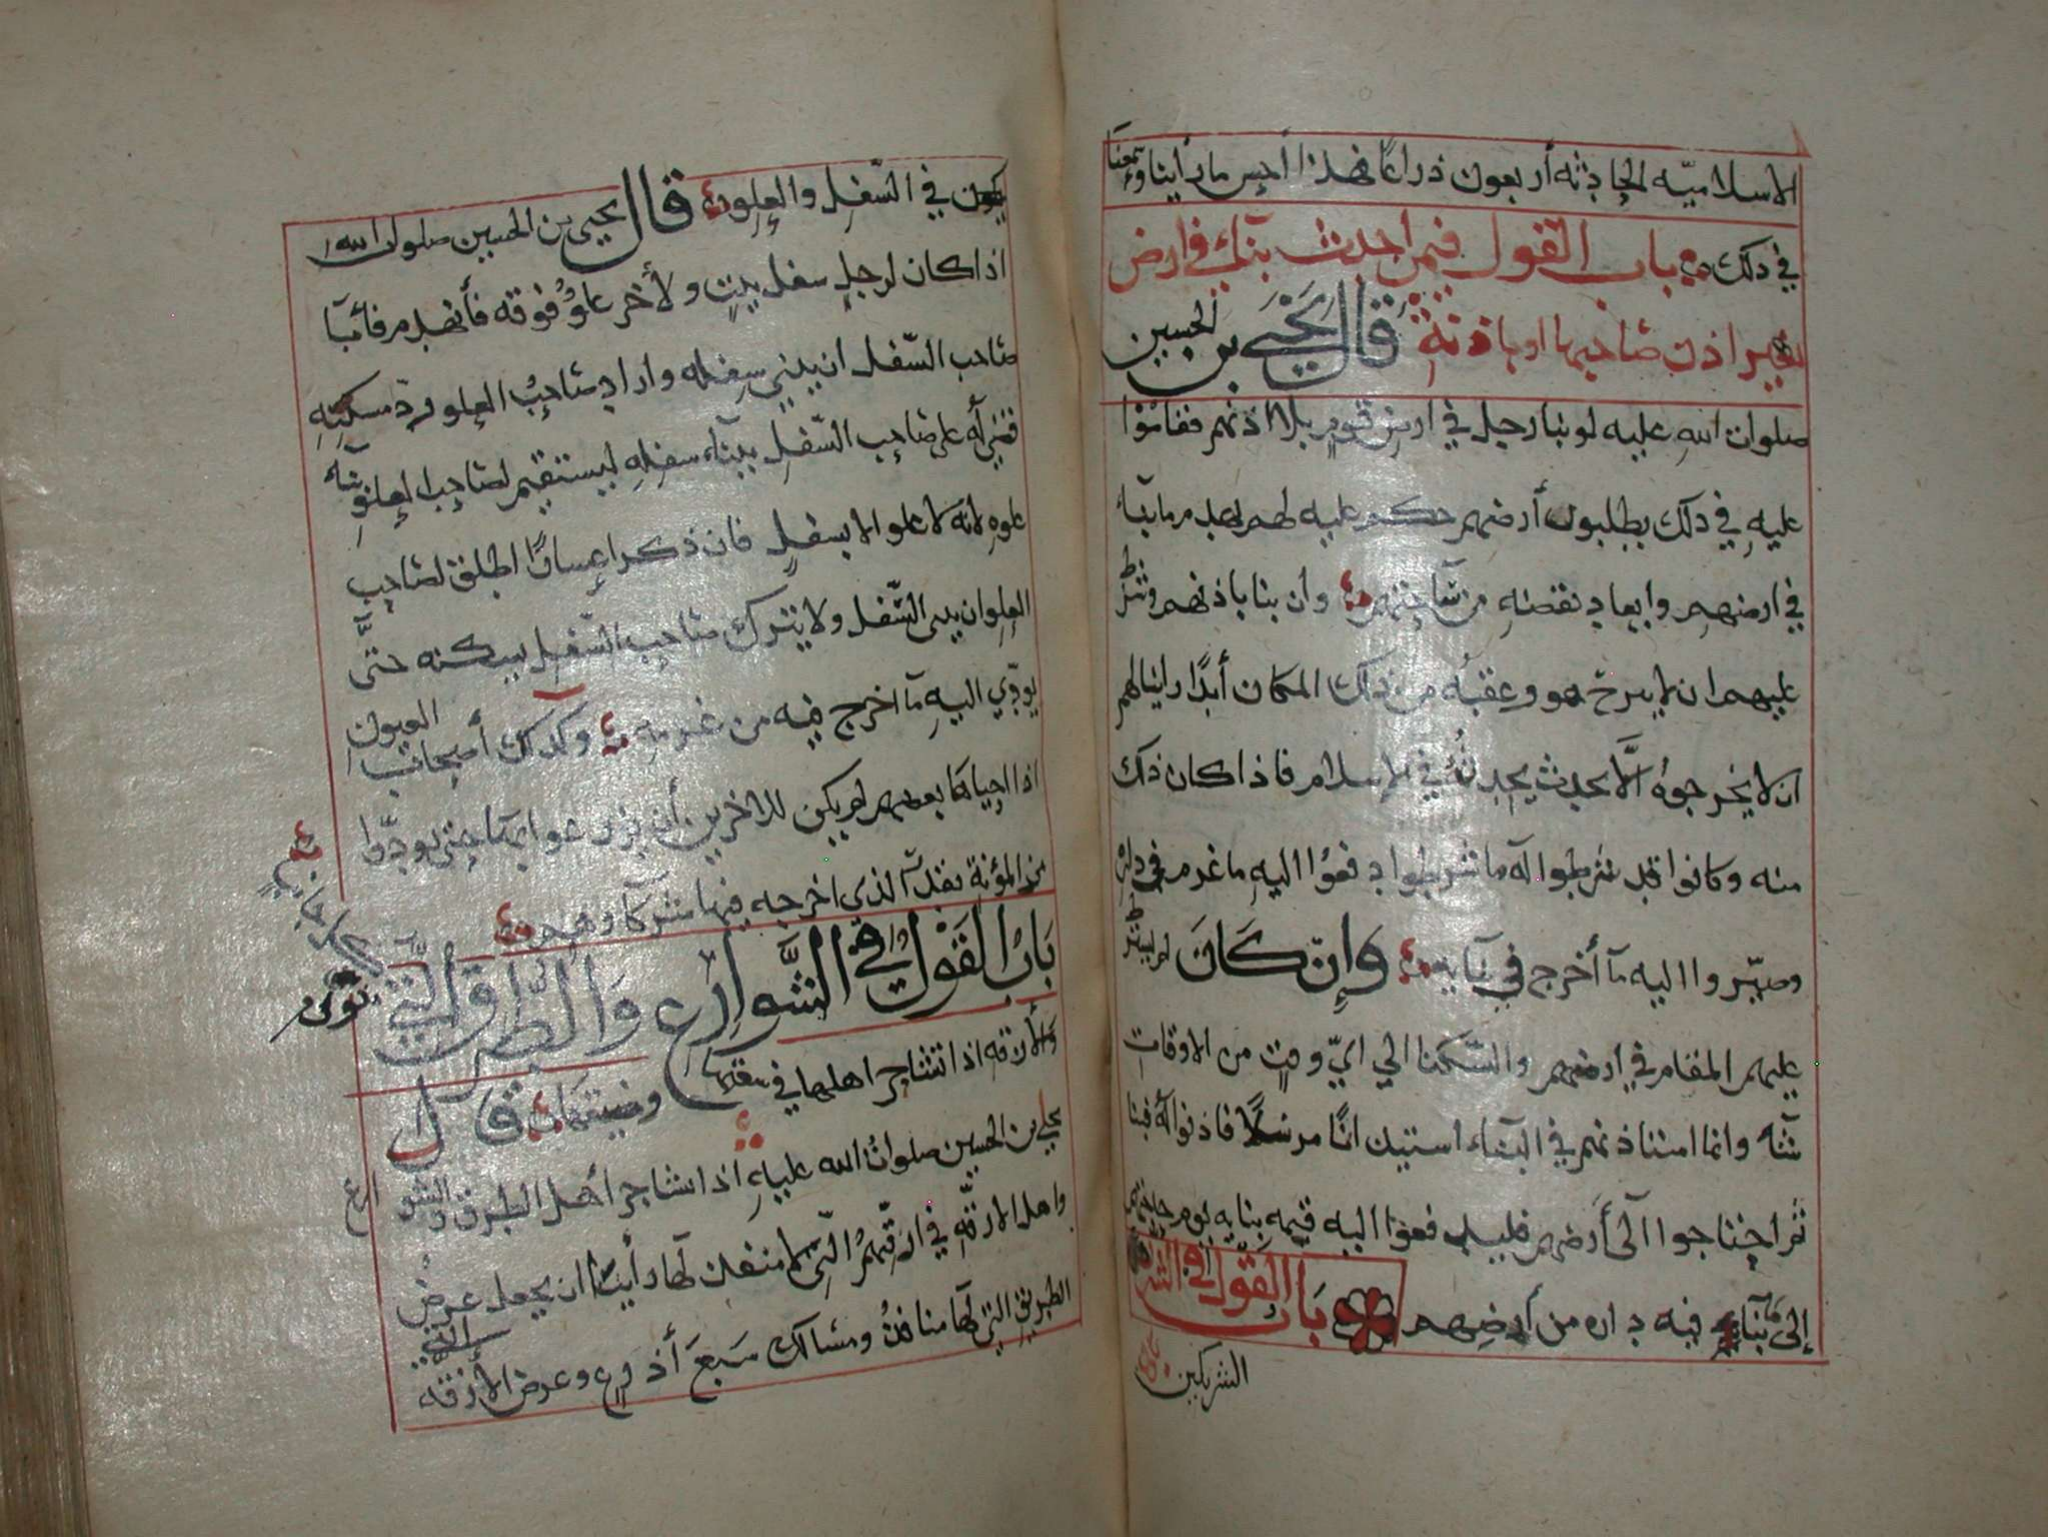 الاسلاميّه الحادثه أربعون ذراعًا فهذا أحسن ما رأينا وسمعنا
في ذلك باب القول فيمن أحدث بنآء في ارض
بغير اذن صاحبها او باذنهِ قال يَحْيَى بن الحسين
صلوات اللهِ عليه لو بنا رجل في ارض قومٍ بلا اذنهم فقاموا
عليهِ في ذلك يطلبون أرضهم حكم عليه لهم بهدم ما بنآء
في ارضهم وابعاد نقضهِ من سآحتهم وان بنا باذنهم وشرط
عليهم ان لا يبرح هو وعقبهُ من ذلك المكان أبدًا وانما لهم
ان لا يخرجوهُ الَّا بحدث يحدثُهُ في الاسلام فاذا كان ذلك
منه وكانوا قد شرطوا له ما شرطوا دفعوا اليهِ ما غرم في داره
وصيّروا اليه مآ أخرج في بنآيه وإن كانَ لم يشترط
عليهم المقام في ارضهم والسّكنا الي ايّ وقت من الاوقات
شآء وانما استاذنهم في البنآء استيذانًا مرسلًا فاذنوا له فبنا
ثم احتاجوا الى أرضهم فليدفعوا اليه قيمه بنايه يوم حاجتهم
إلى ما بناء فيه داره من أرضِهم باب القول في
الشريكين
يكون في السّفل والعلو قال يحيى بن الحسين صلوات الله
اذا كان لرجلٍ سفل بيتٍ ولأخر علوٌ فوقه فأنهدم فأبآ
صاحب السّفل ان يبني سفله واراد صاحبُ العلو ردّ مسكنهِ
قضي لهُ على صاحب السّفل ببنآء سفلهِ ليستقيم لصاحب العلو بنآء
علوهِ لانه لا علو الا بسفلٍ فان ذكر اعسارًا اطلق لصاحب
العلو ان يبنى السّفل ولا يترك صاحب السّفل يسكنه حتَّى
يودّي اليهِ مآ اخرج فيه من غرمهِ وكذلك أصحاب العيون
اذا احياها بعضهم لم يكن للاخرين أن يزرعوا بمآيها حتى يودّوا
من المؤنة بقدر الذى اخرجه فيها شركآوهم
بَابُ القَوْلِ فِي الشَّوارِع وَالطرق التي
والأزقه اذا تشاجر اهلها في سعتها وضيقها قال
يحيى بن الحسين صلواتُ الله عليهِ اذا تشاجر أهل الطرق والشوارع
واهل الازقّهِ في ازقّتهمُ الّتي لا منفذ لها رأيت ان يجعل عرض
الطريق التي لها منافذُ ومسالك سَبعَ أذرع وعرض الازقّه
التي